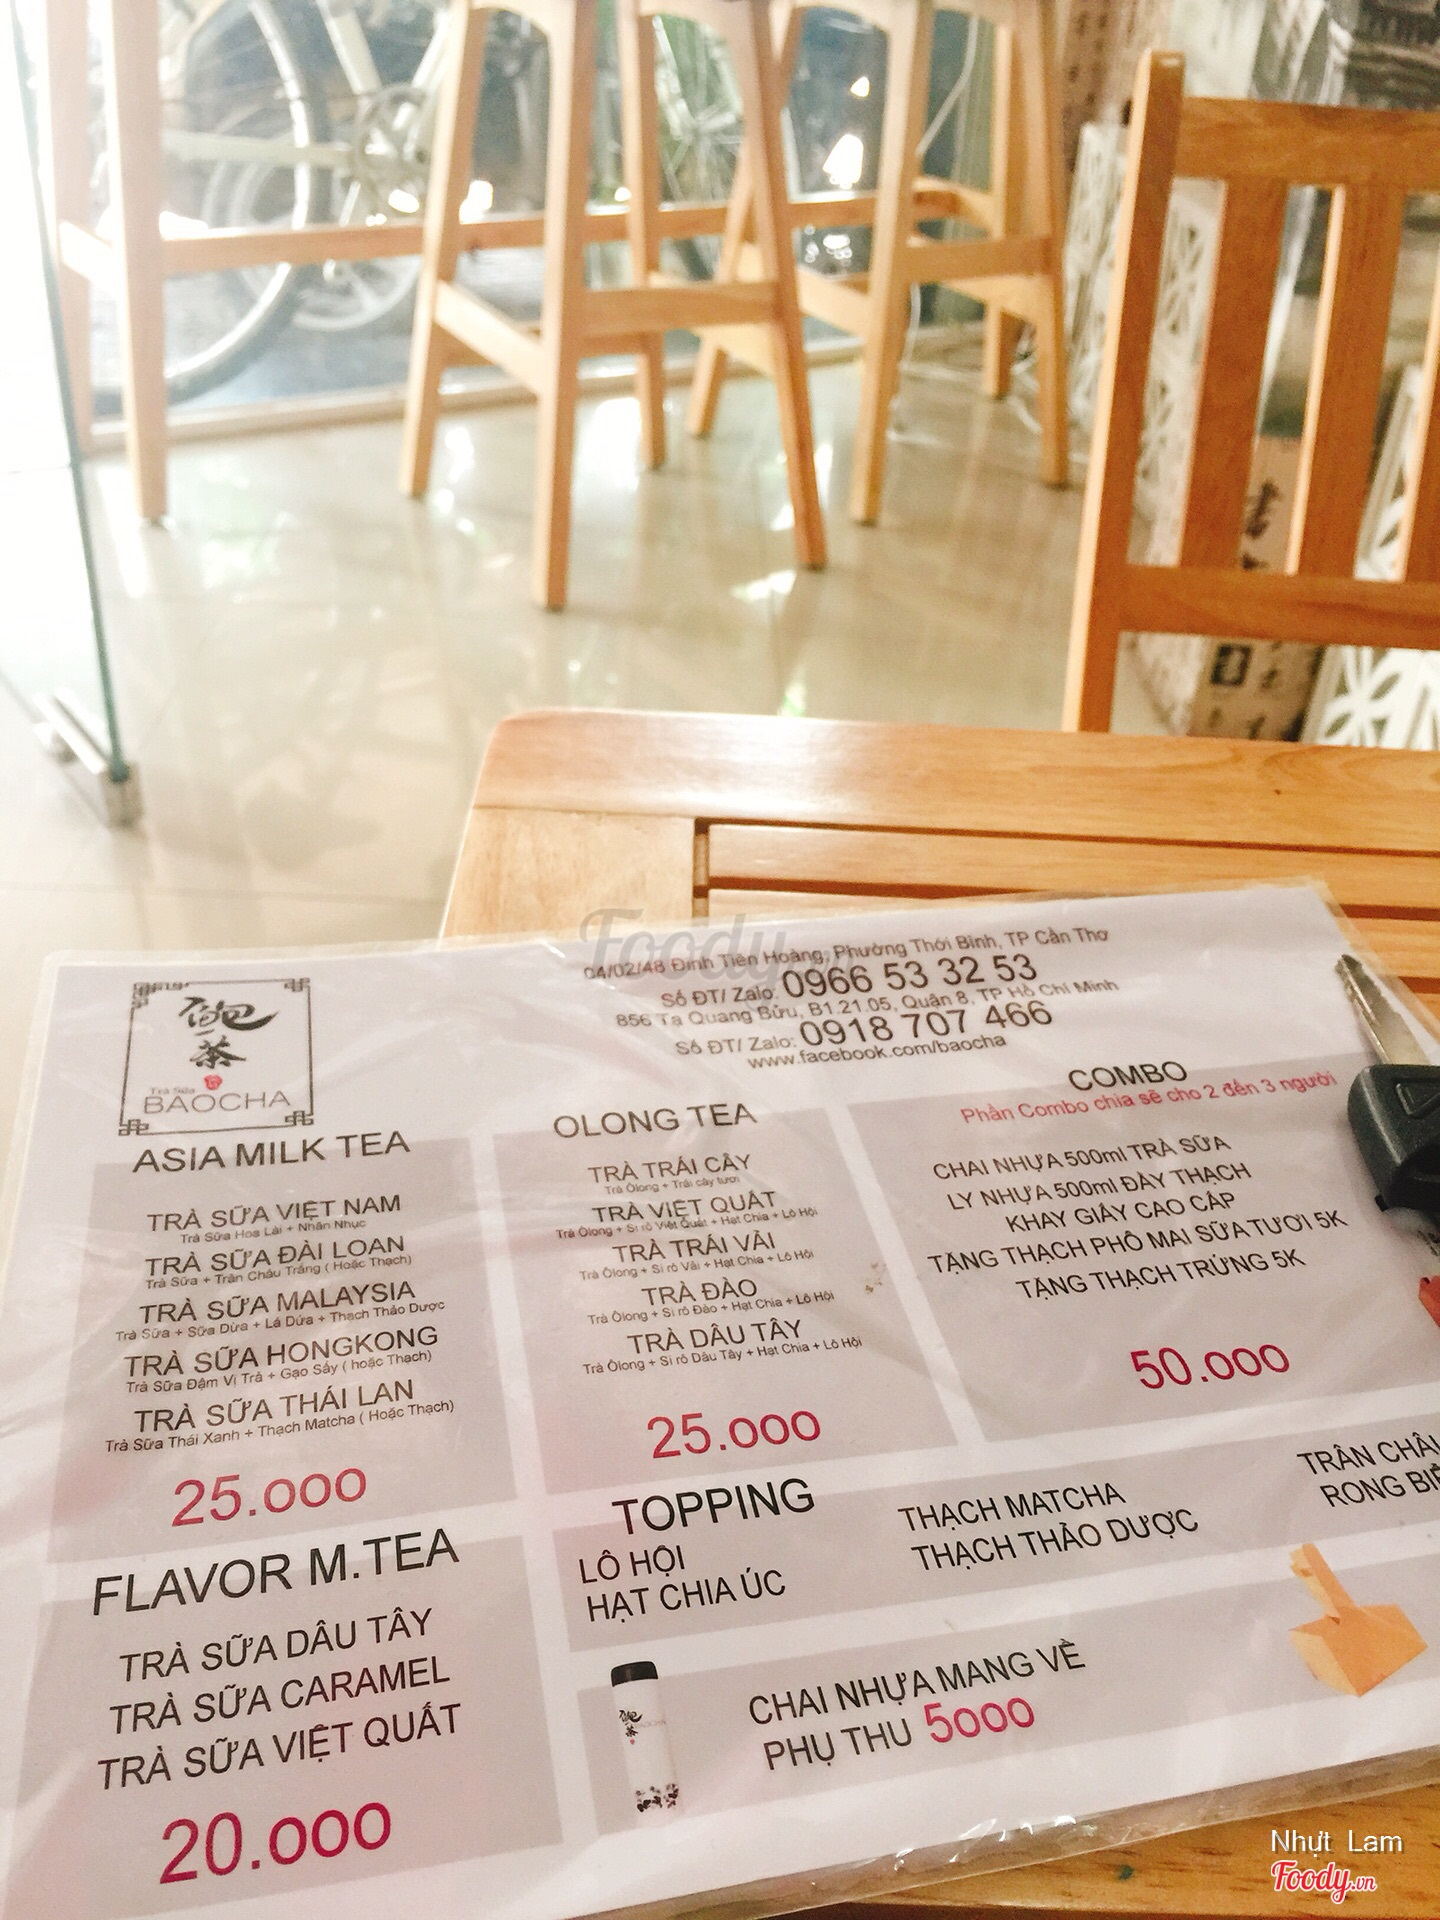 04/02/48 Đinh Tiên Hoàng, Phường Thới Bình, TP Cần Thơ
Số ĐT/ Zalo: 0966 53 32 53
856 Tạ Quang Bửu, B1.21.05, Quận 8, TP Hồ Chí Minh
Số ĐT/ Zalo: 0918 707 466
www.facebook.com/baocha
Trà Sữa
BAOCHA
ASIA MILK TEA
TRÀ SỮA VIỆT NAM
Trà Sữa Hoa Lài + Nhãn Nhục
TRÀ SỮA ĐÀI LOAN
Trà Sữa + Trân Châu Trắng ( Hoặc Thạch)
TRÀ SỮA MALAYSIA
Trà Sữa + Sữa Dừa + Lá Dứa + Thạch Thảo Dược
TRÀ SỮA HONGKONG
Trà Sữa Đậm Vị Trà + Gạo Sấy ( hoặc Thạch)
TRÀ SỮA THÁI LAN
Trà Sữa Thái Xanh + Thạch Matcha ( Hoặc Thạch)
25.000
FLAVOR M.TEA
TRÀ SỮA DÂU TÂY
TRÀ SỮA CARAMEL
TRÀ SỮA VIỆT QUẤT
20.000
OLONG TEA
TRÀ TRÁI CÂY
Trà Ôlong + Trái cây tươi
TRÀ VIỆT QUẤT
Trà Ôlong + Si rô Việt Quất + Hạt Chia + Lô Hội
TRÀ TRÁI VẢI
Trà Ôlong + Si rô Vải + Hạt Chia + Lô Hội
TRÀ ĐÀO
Trà Ôlong + Si rô Đào + Hạt Chia + Lô Hội
TRÀ DÂU TÂY
Trà Ôlong + Si rô Dâu Tây + Hạt Chia + Lô Hội
25.000
COMBO
Phần Combo chia sẽ cho 2 đến 3 người
CHAI NHỰA 500ml TRÀ SỮA
LY NHỰA 500ml ĐẦY THẠCH
KHAY GIẤY CAO CẤP
TẶNG THẠCH PHÔ MAI SỮA TƯƠI 5K
TẶNG THẠCH TRỨNG 5K
50.000
TOPPING
LÔ HỘI
HẠT CHIA ÚC
THẠCH MATCHA
THẠCH THẢO DƯỢC
TRÂN CHÂU
RONG
CHAI NHỰA MANG VỀ
PHỤ THU 5000
BAOCHA
Foody.vn
Nhựt Lam
Foody.vn